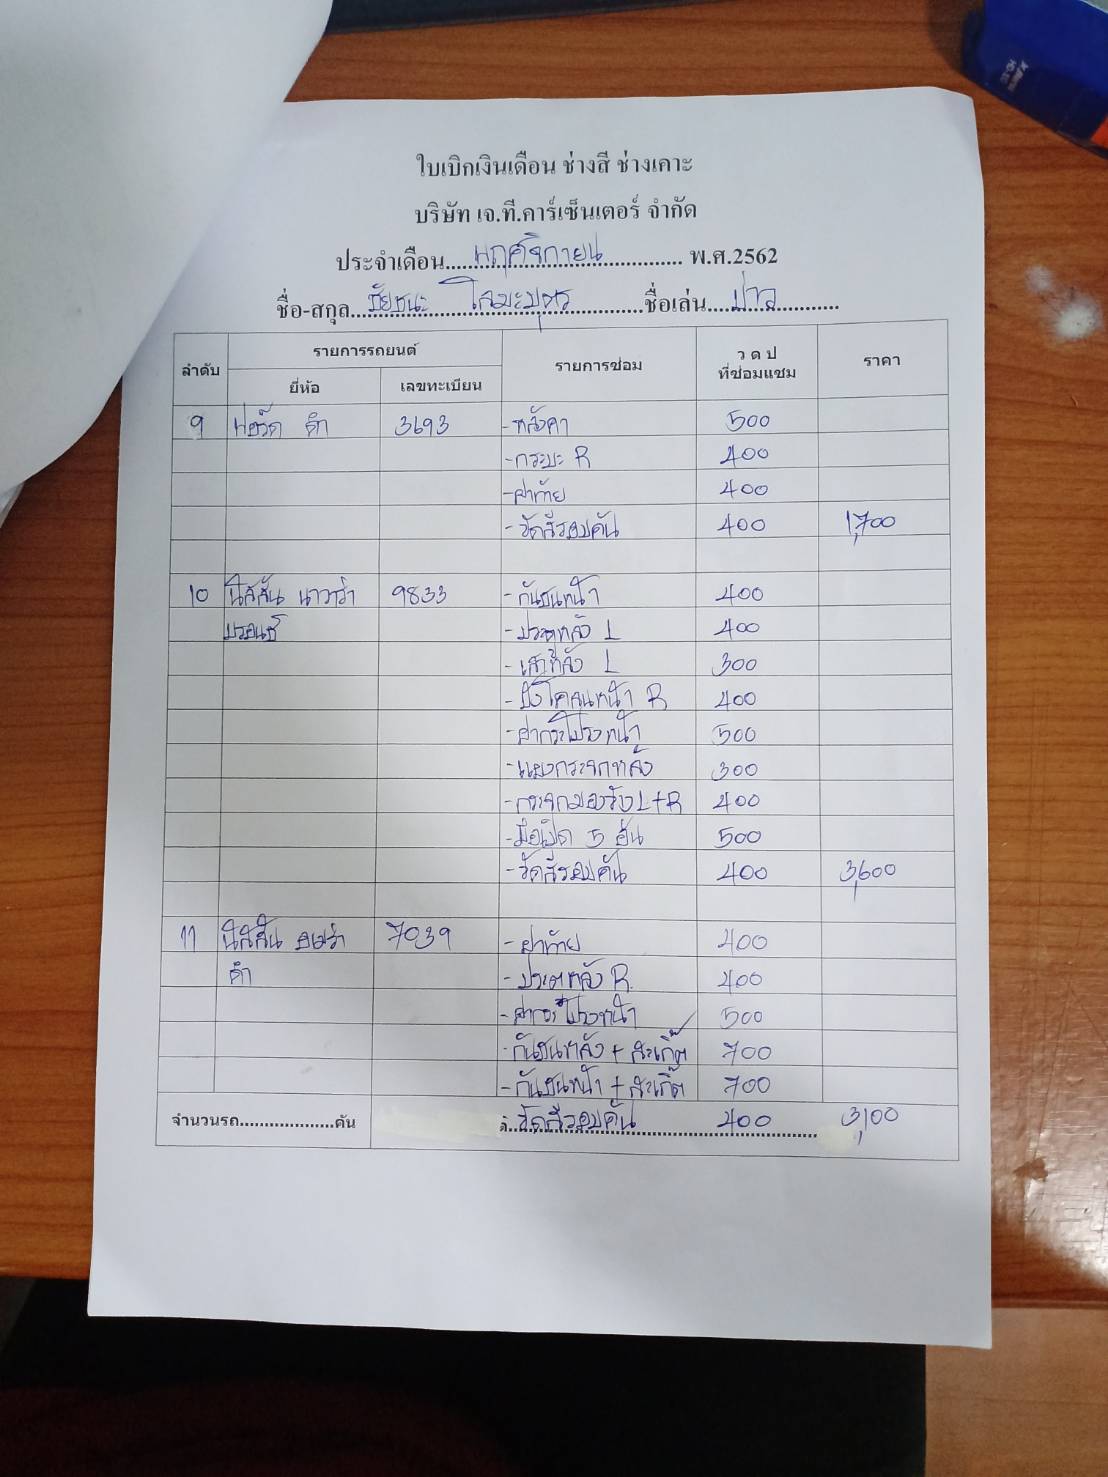 ใบเบิกเงินเดือน ช่างสี ช่างเคาะ
บริษัท เจ.ที.คาร์เซ็นเตอร์ จำกัด
ประจำเดือน....พฤศจิกายน.... พ.ศ.2562
ชื่อ-สกุล....ชัยชนะ ....ชื่อเล่น....ปาว....
ลำดับ รายการรถยนต์ รายการซ่อม ว ด ป ที่ซ่อมแซม ราคา
ยี่ห้อ เลขทะเบียน
9 ฟอร์ด ดำ 3693 -หลังคา 500
-กระบะ R 400
-ฝาท้าย 400
-ขัดสีรอบคัน 400 1,700
10 นิสสัน นาวาร่า 9833 -กันชนหน้า 400
บรอนซ์ -ประตูหลัง L 400
-เสาหลัง L 300
-บังโคลนหน้า R 400
-ฝากระโปรงหน้า 500
-แผงกระจกหลัง 300
-กระจกมองข้าง L+R 400
-มือเปิด 5 อัน 500
-ขัดสีรอบคัน 400 3,600
11 นิสสัน อเมร่า 7039 -ฝาท้าย 400
ดำ -ประตูหลัง R. 400
-ฝากระโปรงหน้า 500
-กันชนหลัง + สะเกิ๊ต 700
-กันชนหน้า + สะเกิ๊ต 700
จำนวนรถ....................คัน -ขัดสีรอบคัน 400 3,100